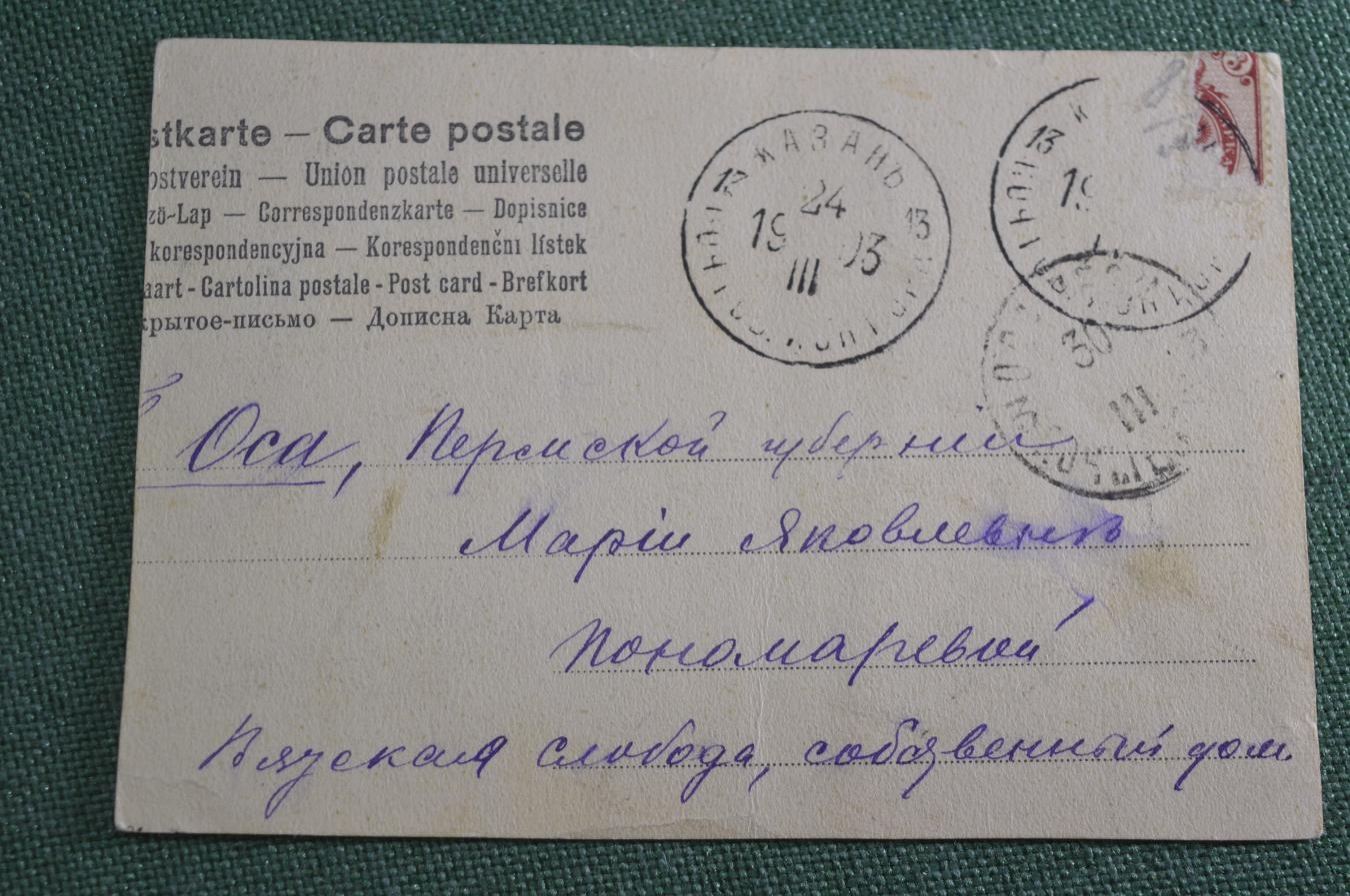 stkarte — Carte postale
ostverein — Union postale universelle
zö-Lap — Correspondenzkarte — Dopisnice
korespondencyjna — Korespondenčni lístek
aart - Cartolina postale - Post card - Brefkort
крытое-письмо — Дописна Карта
КАЗАНЬ
13 13
24
19 03
III
13 К
19
30
III
3
МАРКА
Оса, Пермской губерніи
Маріи Яковлевнѣ
Пономаревой
Вязская слобода, собственный дом